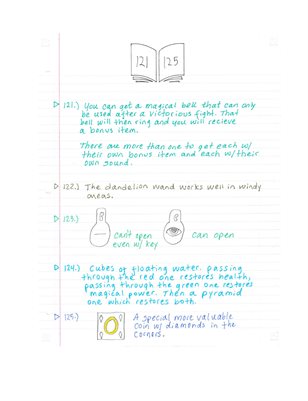 121 125
121.) You can get a magical bell that can only
be used after a victorious fight. That
bell will then ring and you will recieve
a bonus item.
There are more than one to get each w/
their own bonus item and each w/their
own sound.
122.) The dandelion wand works well in windy
areas.
123.)
Can't open
even w/ key
Can open
124.) Cubes of floating water, passing
through the red one restores health,
passing through the green one restores
magical power. Then a pyramid
one which restores both.
125.) A special more valuable
coin w/ diamonds in the
corners.